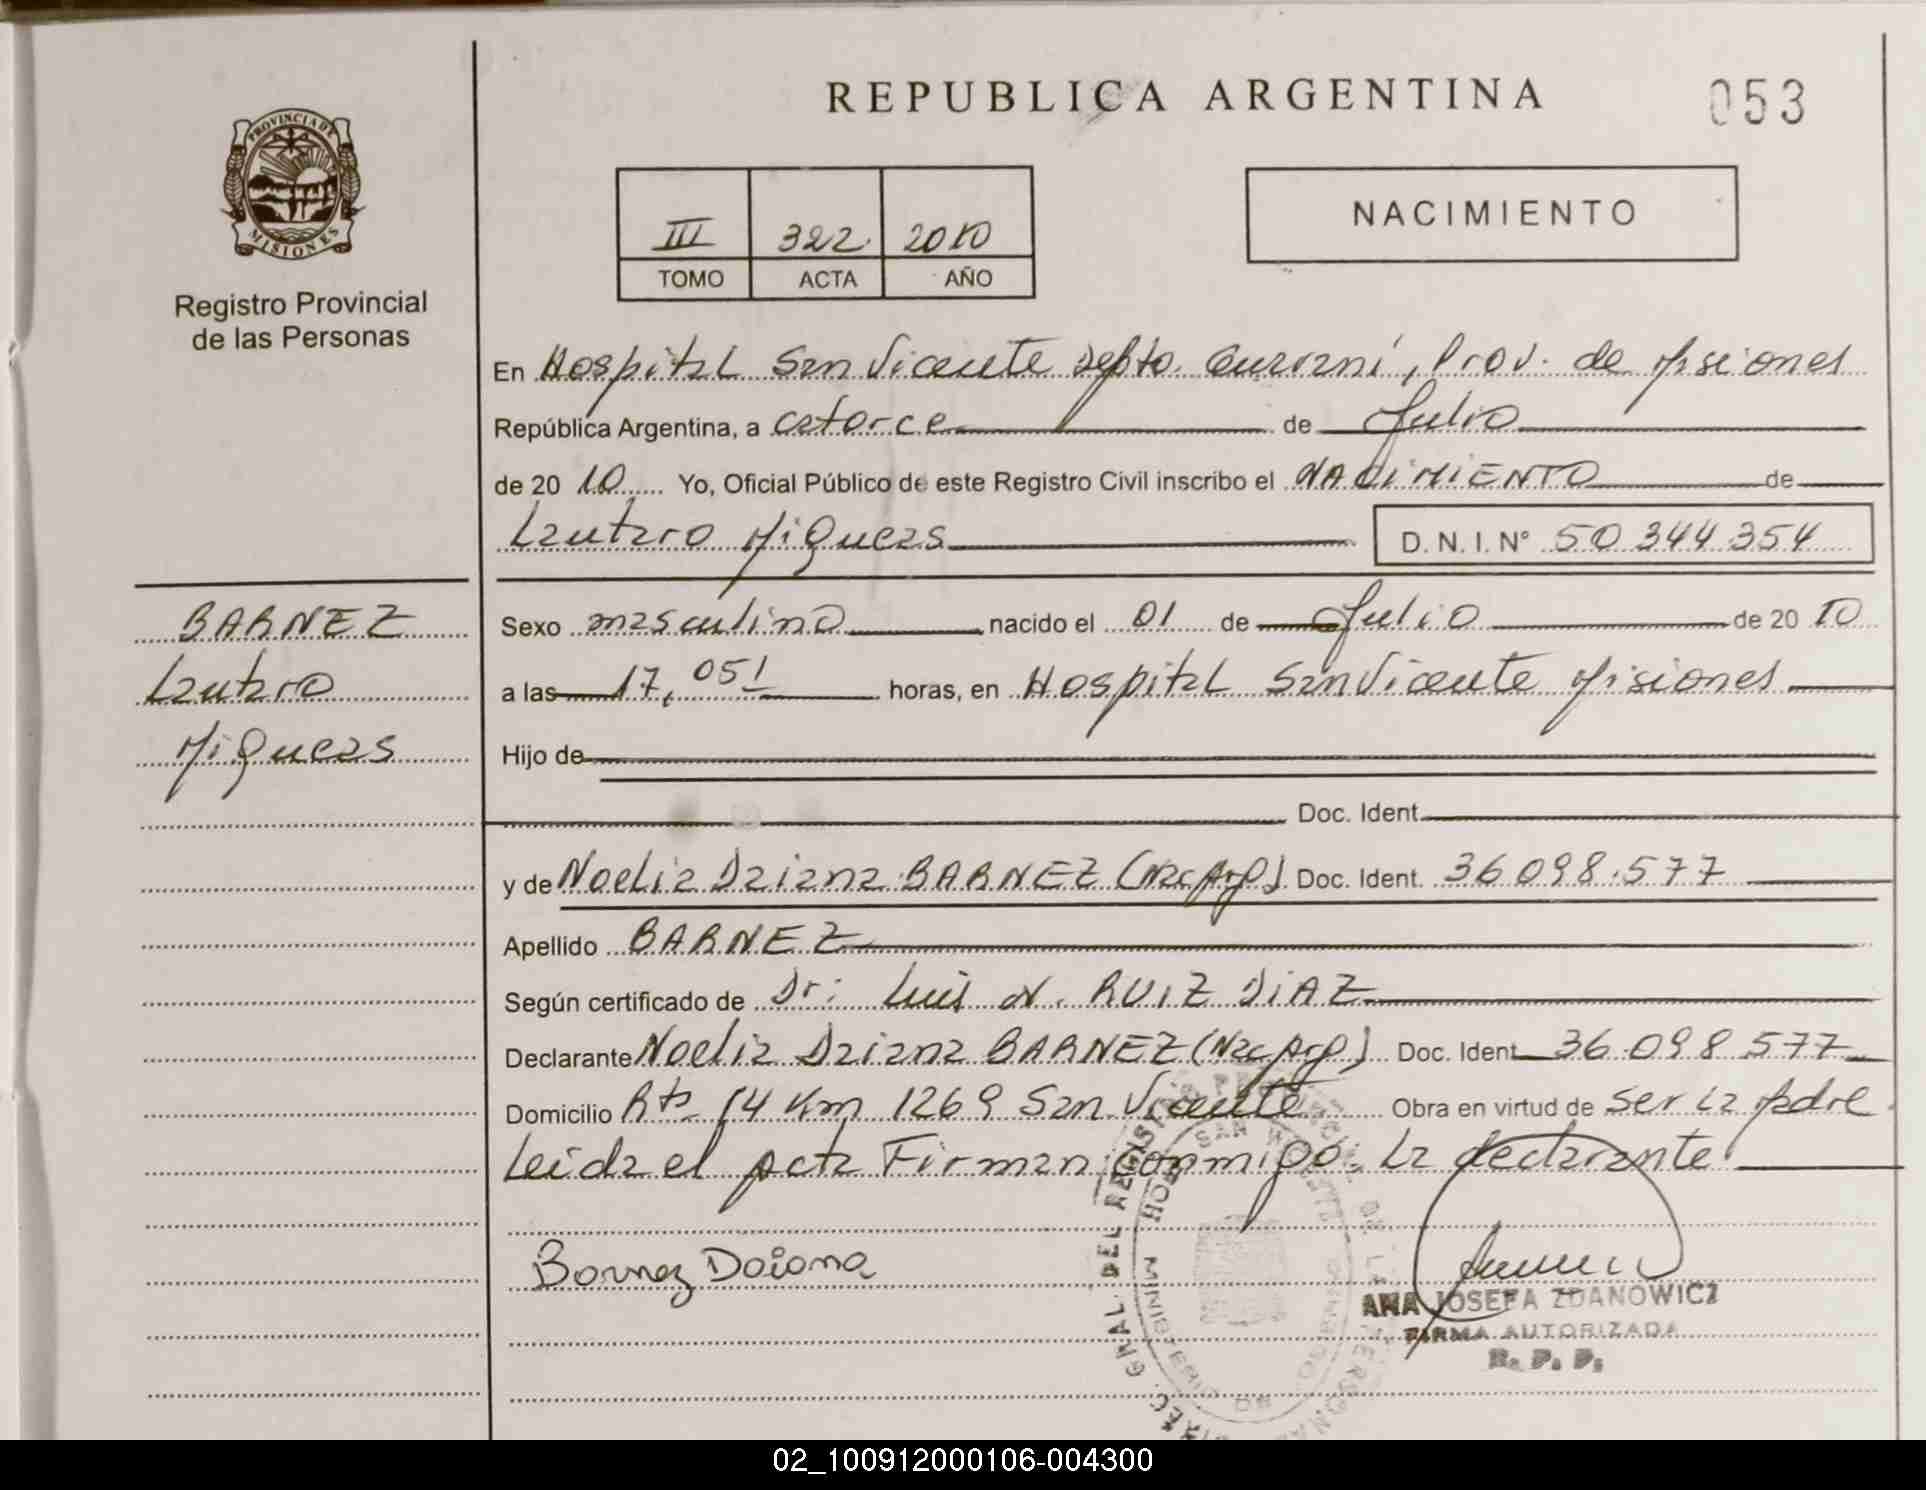 REPUBLICA ARGENTINA
053
PROVINCIA DE
MISIONES
Registro Provincial
de las Personas
III 322 2010
TOMO ACTA AÑO
NACIMIENTO
En Hospital San Vicente Depto. Guaraní, Prov. de Misiones
República Argentina, a catorce de Julio
de 2010 Yo, Oficial Público de este Registro Civil inscribo el NACIMIENTO de
Lautaro Miqueas D. N. I. N° 50 344 354
BARNEZ
Lautaro
Miqueas
Sexo masculino nacido el 01 de Julio de 2010
a las 17,05' horas, en Hospital San Vicente Misiones
Hijo de
Doc. Ident.
y de Noelia Daiana BARNEZ (Nac Arg) Doc. Ident. 36 098.577
Apellido BARNEZ
Según certificado de Dr: Luis N. RUIZ DIAZ
Declarante Noelia Daiana BARNEZ (Nac Arg) Doc. Ident 36.098 577
Domicilio Rta 14 Km 1269 San Vicente Obra en virtud de ser la Madre
Leida el acta Firman conmigo: La declarante
Barnez Daiana
ANA JOSEFA ZDANOWICZ
FIRMA AUTORIZADA
R. P. P.
GRAL. DEL REGIST
DE LAS PERSONAS
MINISTERIO DE
02_100912000106-004300